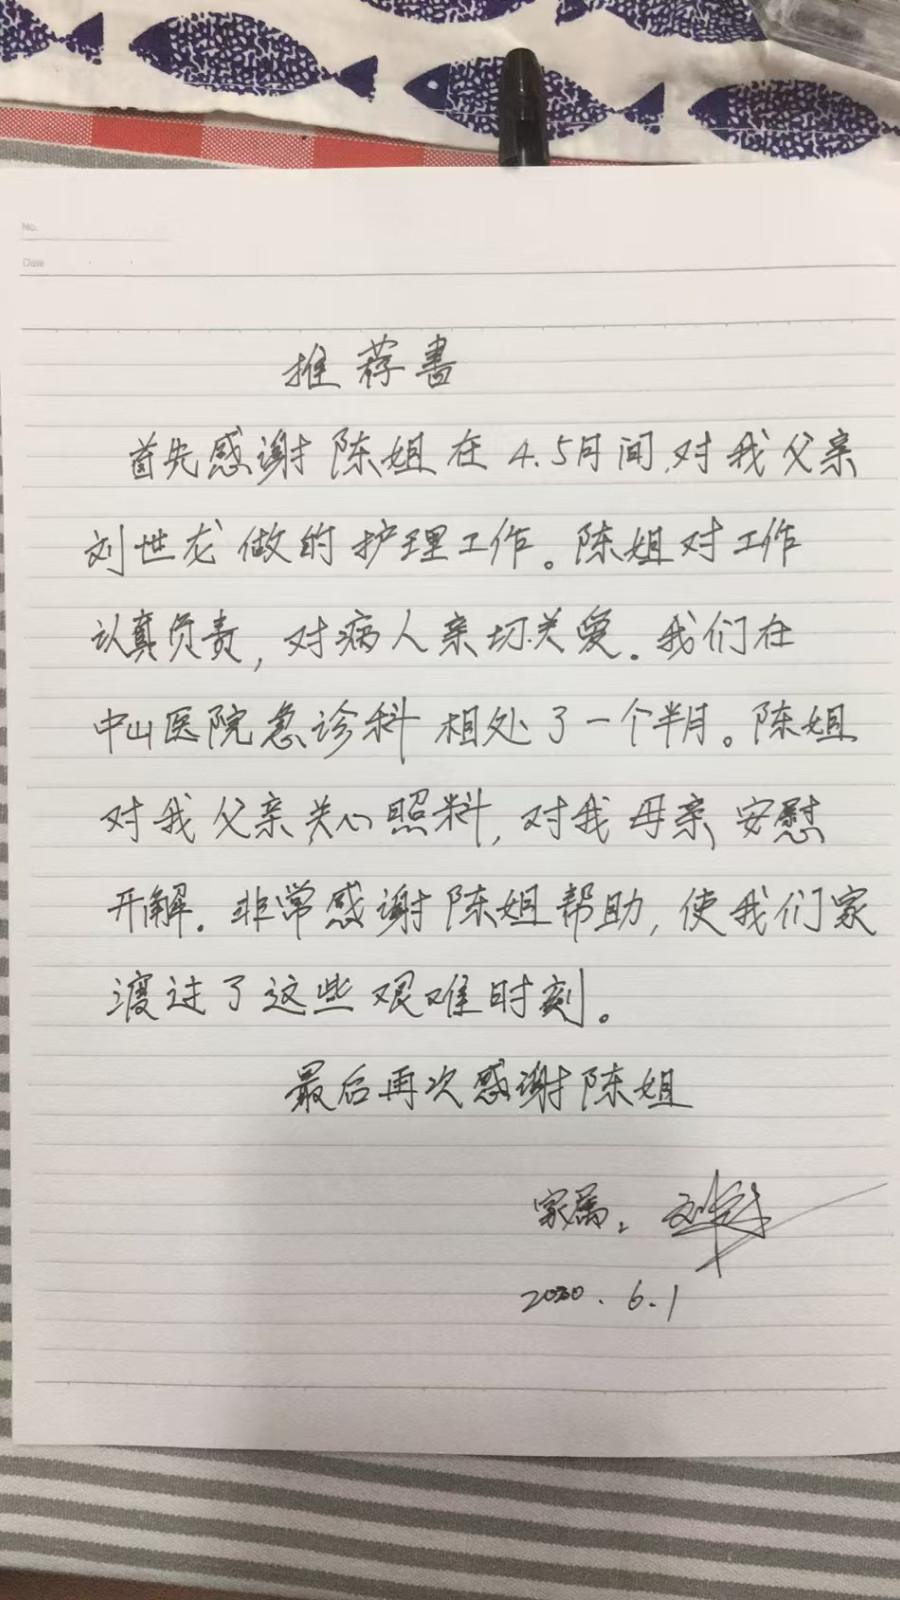 No.
Date
推荐書
首先感谢陈姐在4.5月间,对我父亲
刘世龙做的护理工作。陈姐对工作
认真负责,对病人亲切关爱.我们在
中山医院急诊科相处了一个半月。陈姐
对我父亲关心照料,对我母亲安慰
开解.非常感谢陈姐帮助,使我们家
渡过了这些艰难时刻。
最后再次感谢陈姐
家属:
2020.6.1